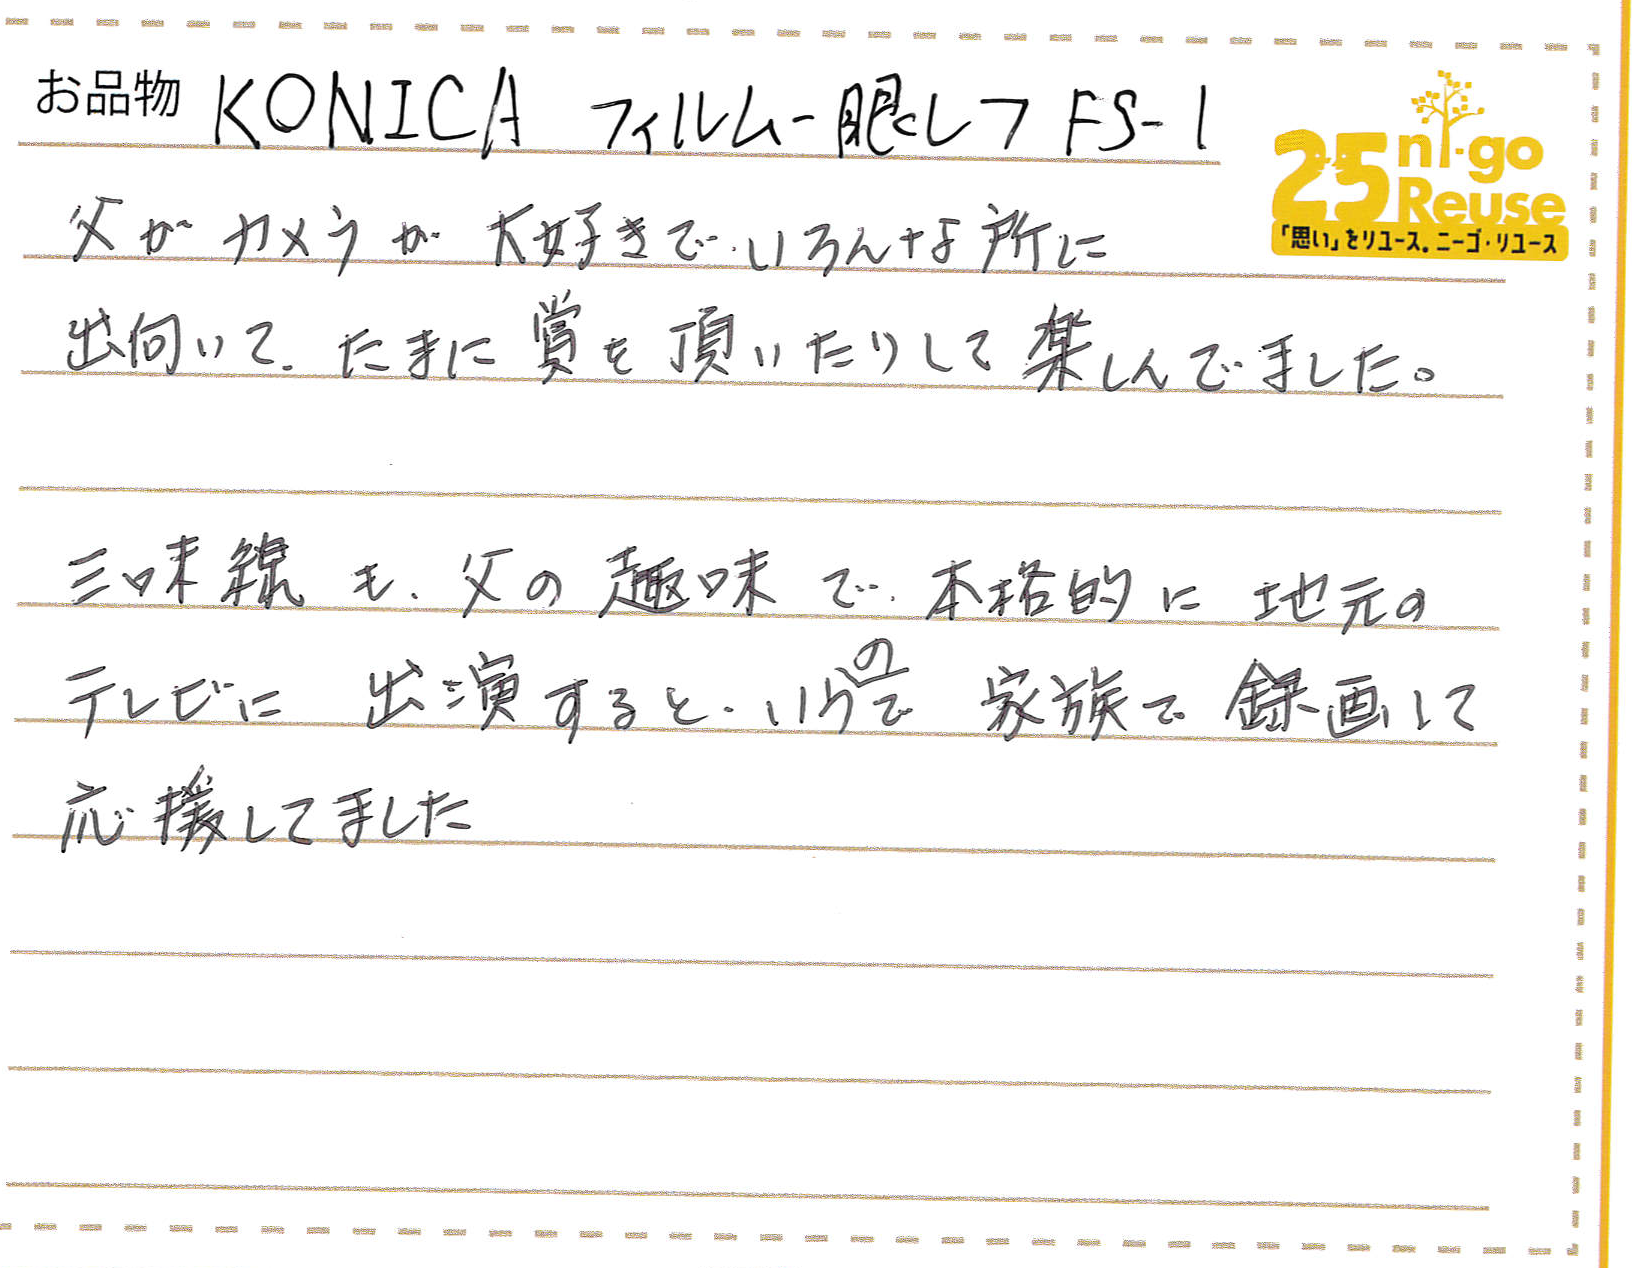 お品物 KONICA フィルム一眼くレフ FS-1
25 ni-go
Reuse
「思い」をリユース。ニーゴ・リユース
父がカメラが大好きで、いろんな所に
出向いて、たまに賞を頂いたりして楽しんでました。
三味線も、父の趣味で、本格的に地元の
テレビに出演すると、いうので家族で録画して
応援してました